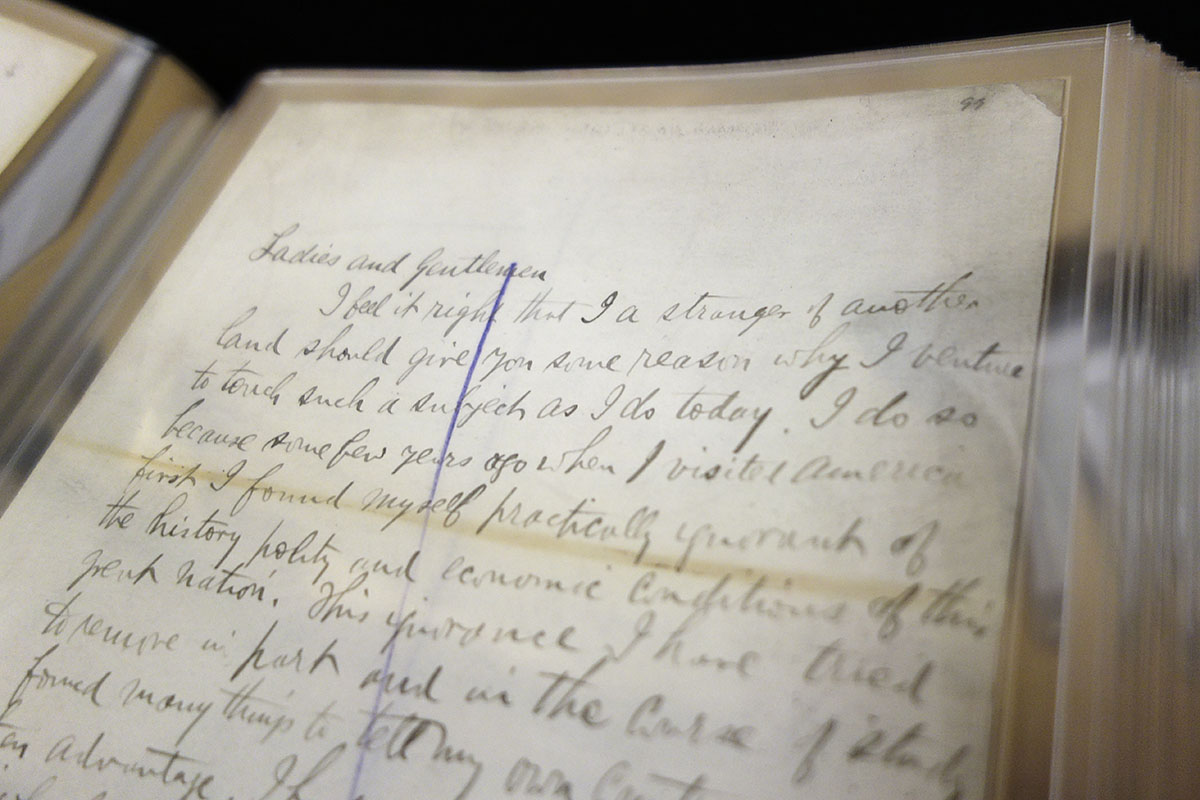 99
Ladies and Gentlemen
I feel it right that I a stranger of another
land should give you some reason why I venture
to touch such a subject as I do today. I do so
because some few years ago when I visited America
first I found myself practically ignorant of
the history polity and economic conditions of this
great nation. This ignorance I have tried
to remove in part and in the course of study
found many things to tell my own
an advantage. I